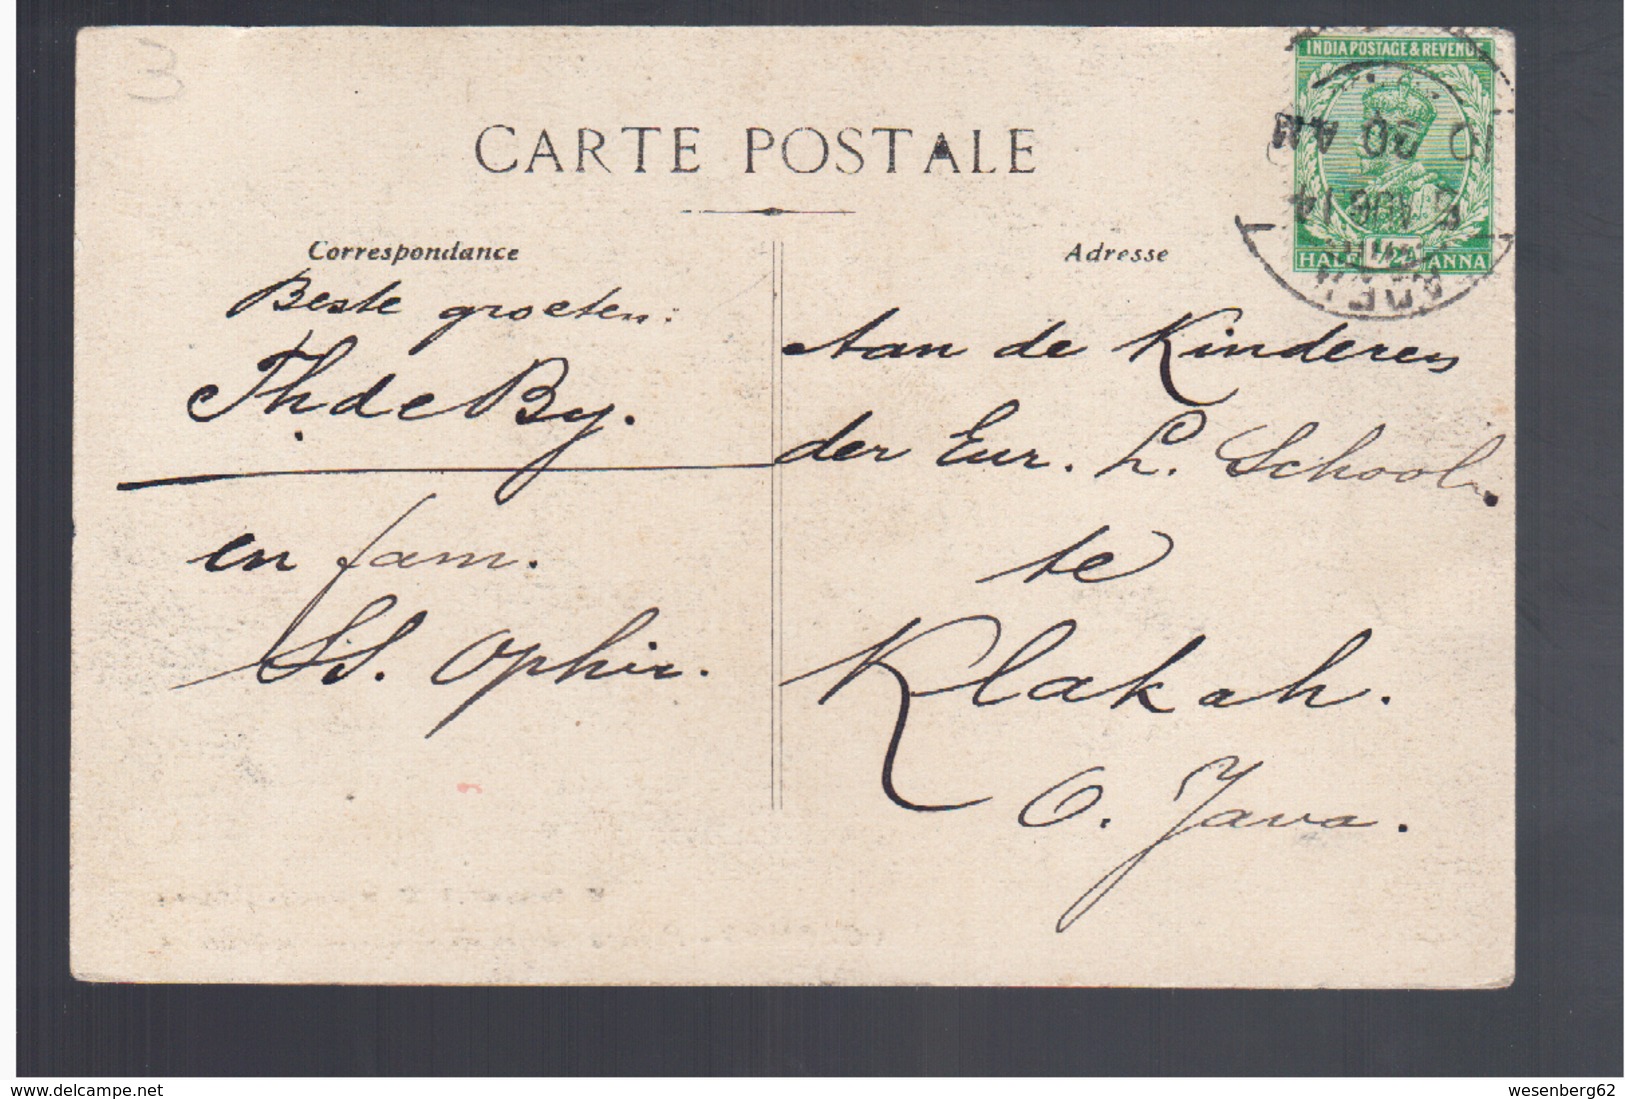 3
CARTE POSTALE
INDIA POSTAGE & REVENUE
10 30 AM
AUG 14
ADEN
HALF ANNA
Correspondance
Beste groeten:
Th. de By.
en fam.
SS. Ophir.
Adresse
Aan de Kinderen
der Eur. L. School.
te
Klakah.
O. Java.
www.delcampe.net
wesenberg62